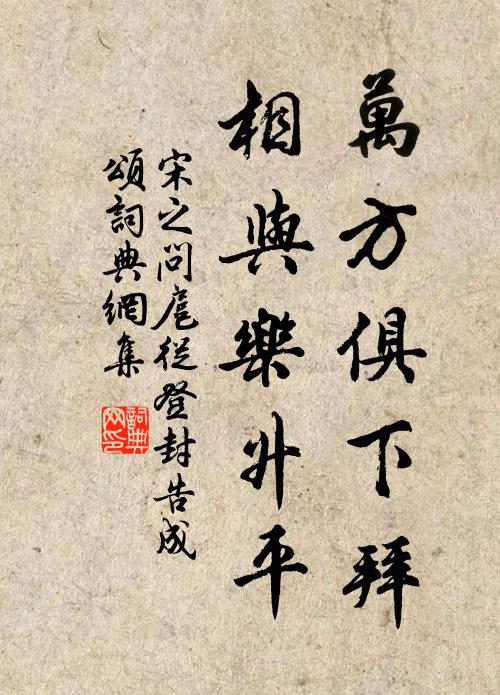 萬方俱下拜
相與樂升平
宋之問扈從登封告成
頌詞典網集
詞典網印